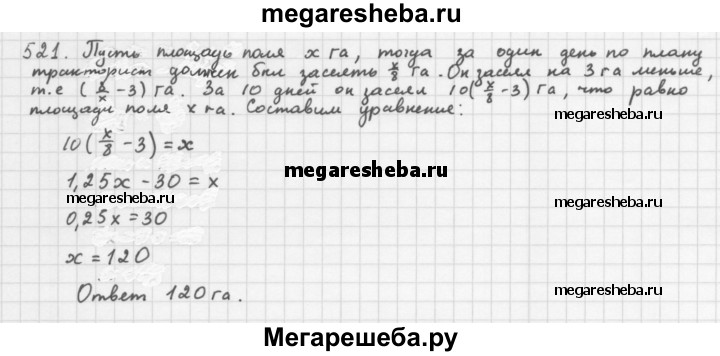 megaresheba.ru
521. Пусть площадь поля x га, тогда за один день по плану
тракторист должен был засеять x/8 га. Он засеял на 3 га меньше,
т.е (8/x - 3) га. За 10 дней он засеял 10(x/8 - 3) га, что равно
площади поля x га. Составим уравнение:
megaresheba.ru
10(x/8 - 3) = x
megaresheba.ru
1,25x - 30 = x
megaresheba.ru
0,25x = 30
x = 120
megaresheba.ru
Ответ 120 га.
Мегарешеба.ру